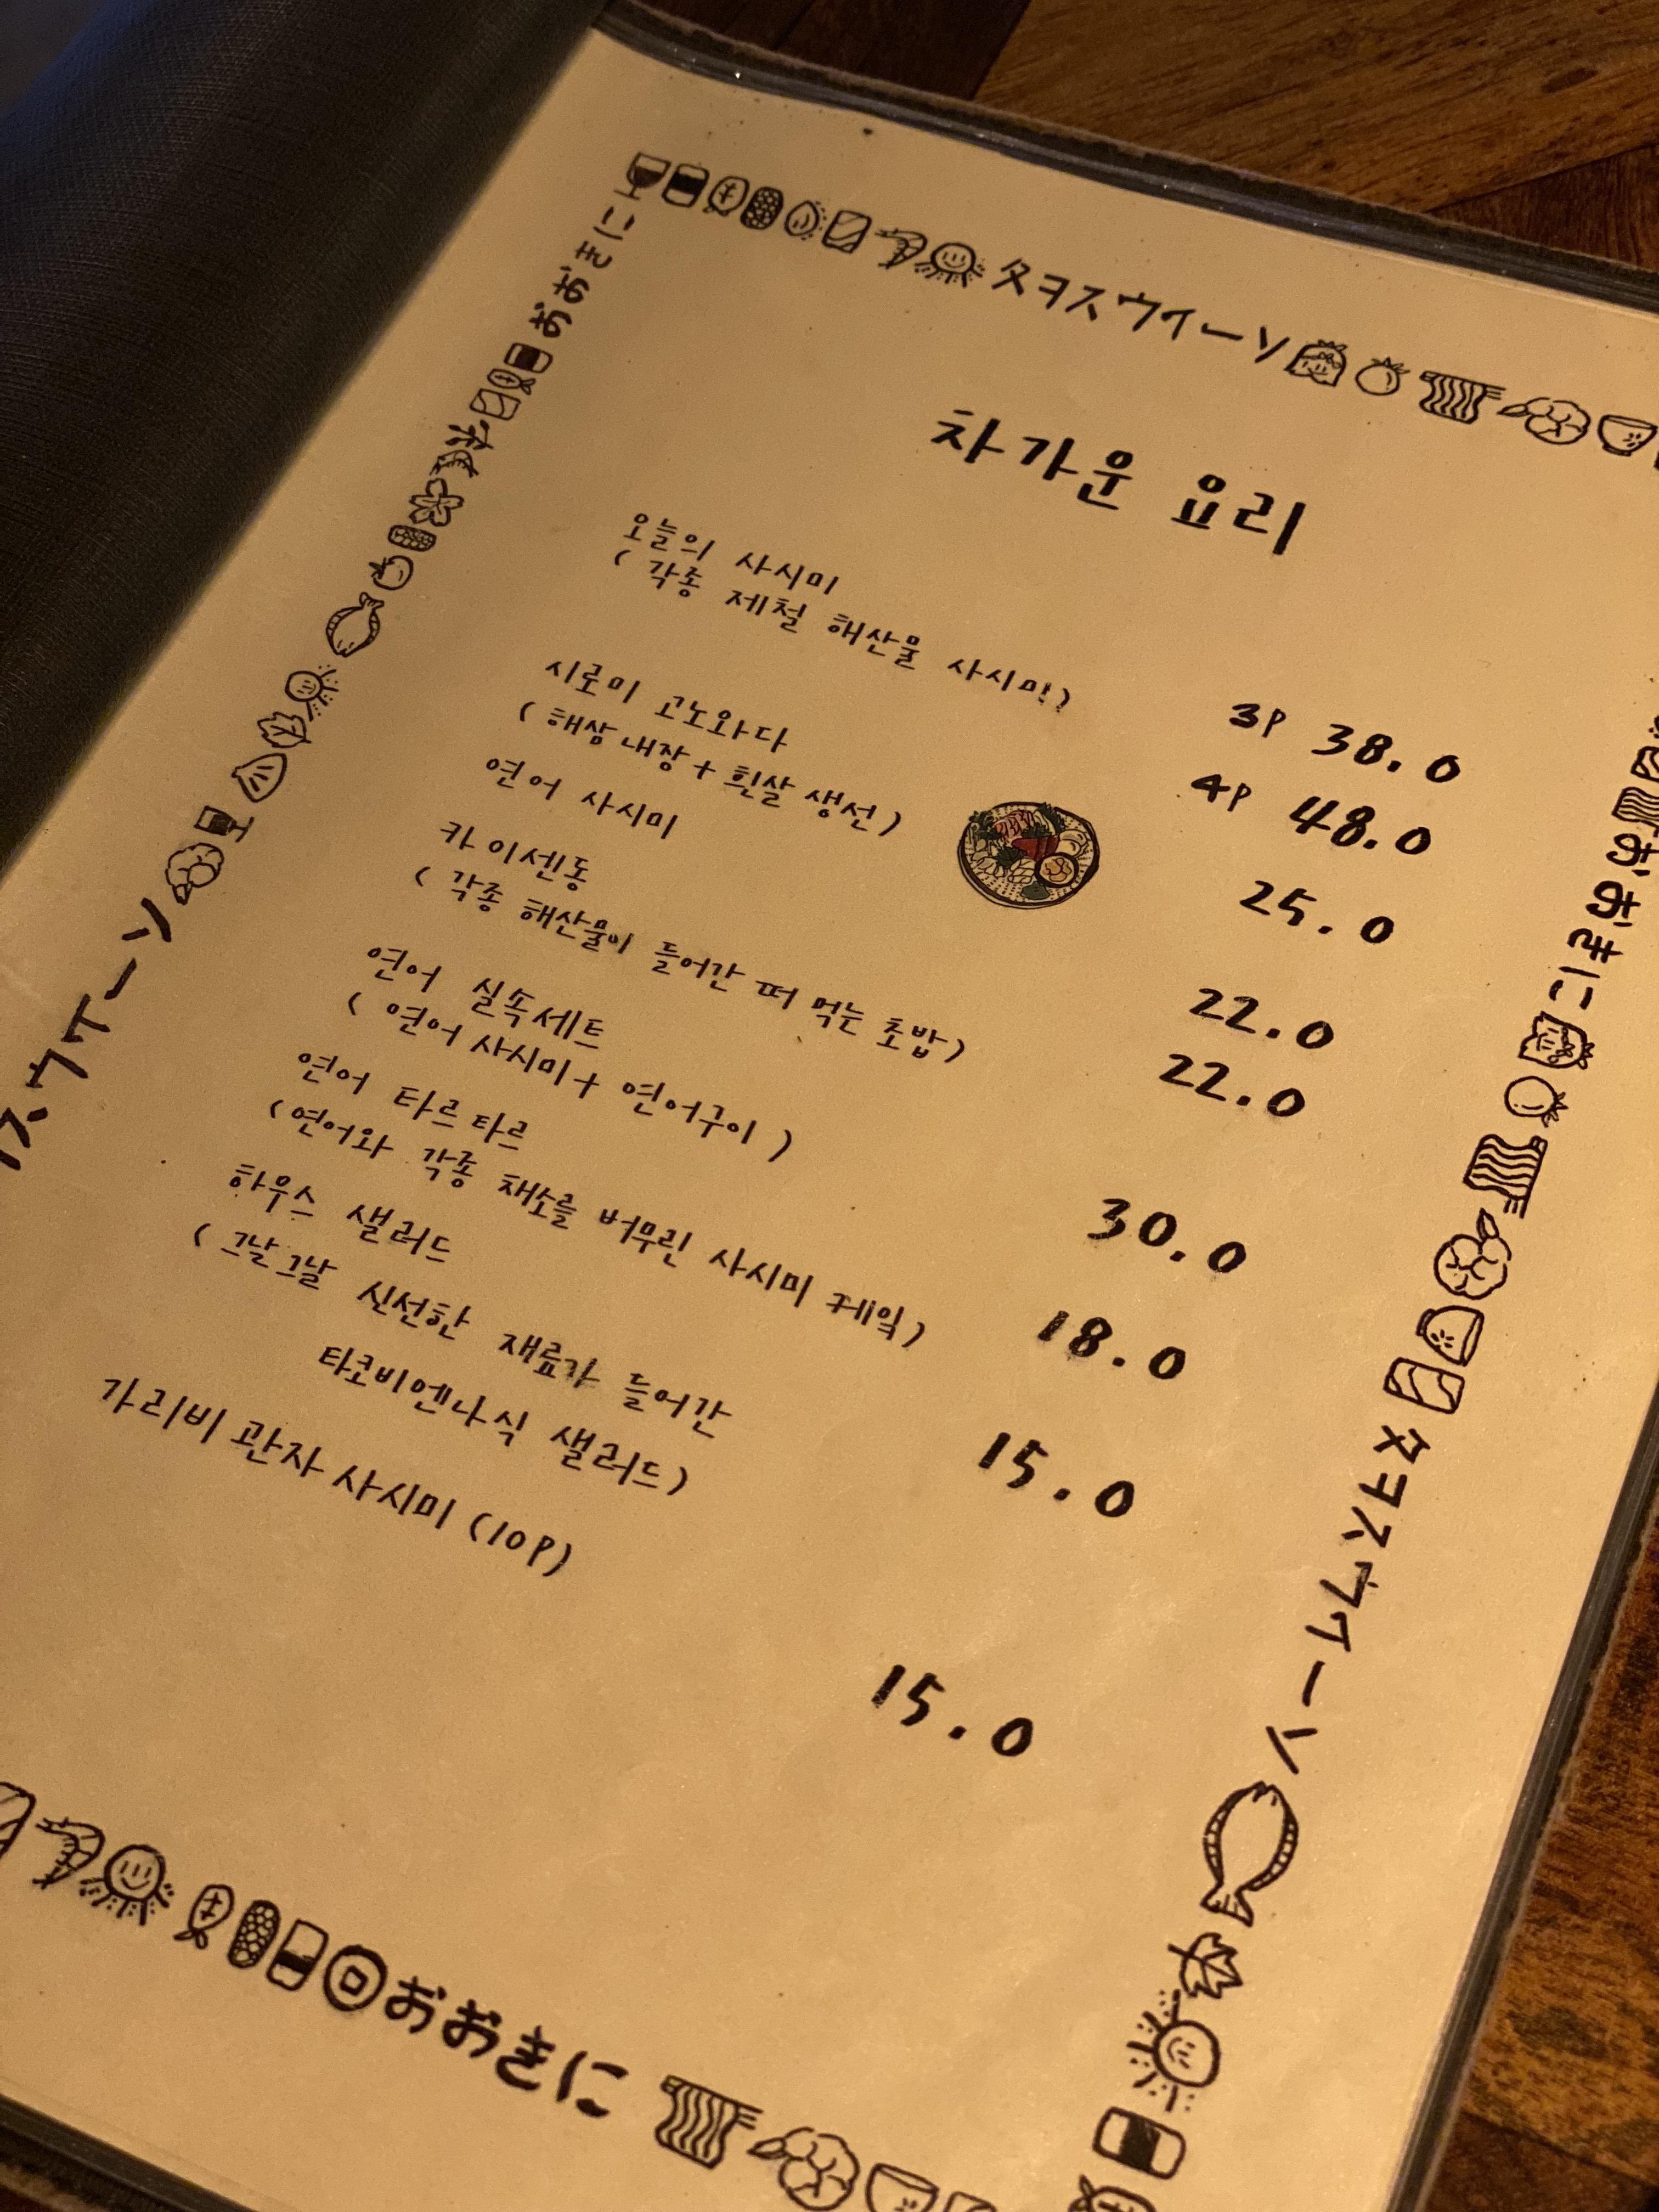 タヲスウイーソ
おおきに
차가운 요리
오늘의 사시미
( 각종 제철 해산물 사시미)
3P 38.0
4P 48.0
시로미 고노와다
( 해삼 내장 + 흰살 생선 )
25.0
연어 사시미
22.0
카이센동
( 각종 해산물이 들어간 떠 먹는 초밥)
22.0
연어 실속세트
( 연어 사시미 + 연어구이 )
30.0
연어 타르타르
(연어와 각종 채소를 버무린 사시미
18.0
하우스 샐러드
( 그날그날 신선한 재료가 들어간
타코비엔나식 샐러드)
15.0
가리비 관자 사시미 (10P)
15.0
スウイーソ
おおきに
タヲスウイーソ
おおきに